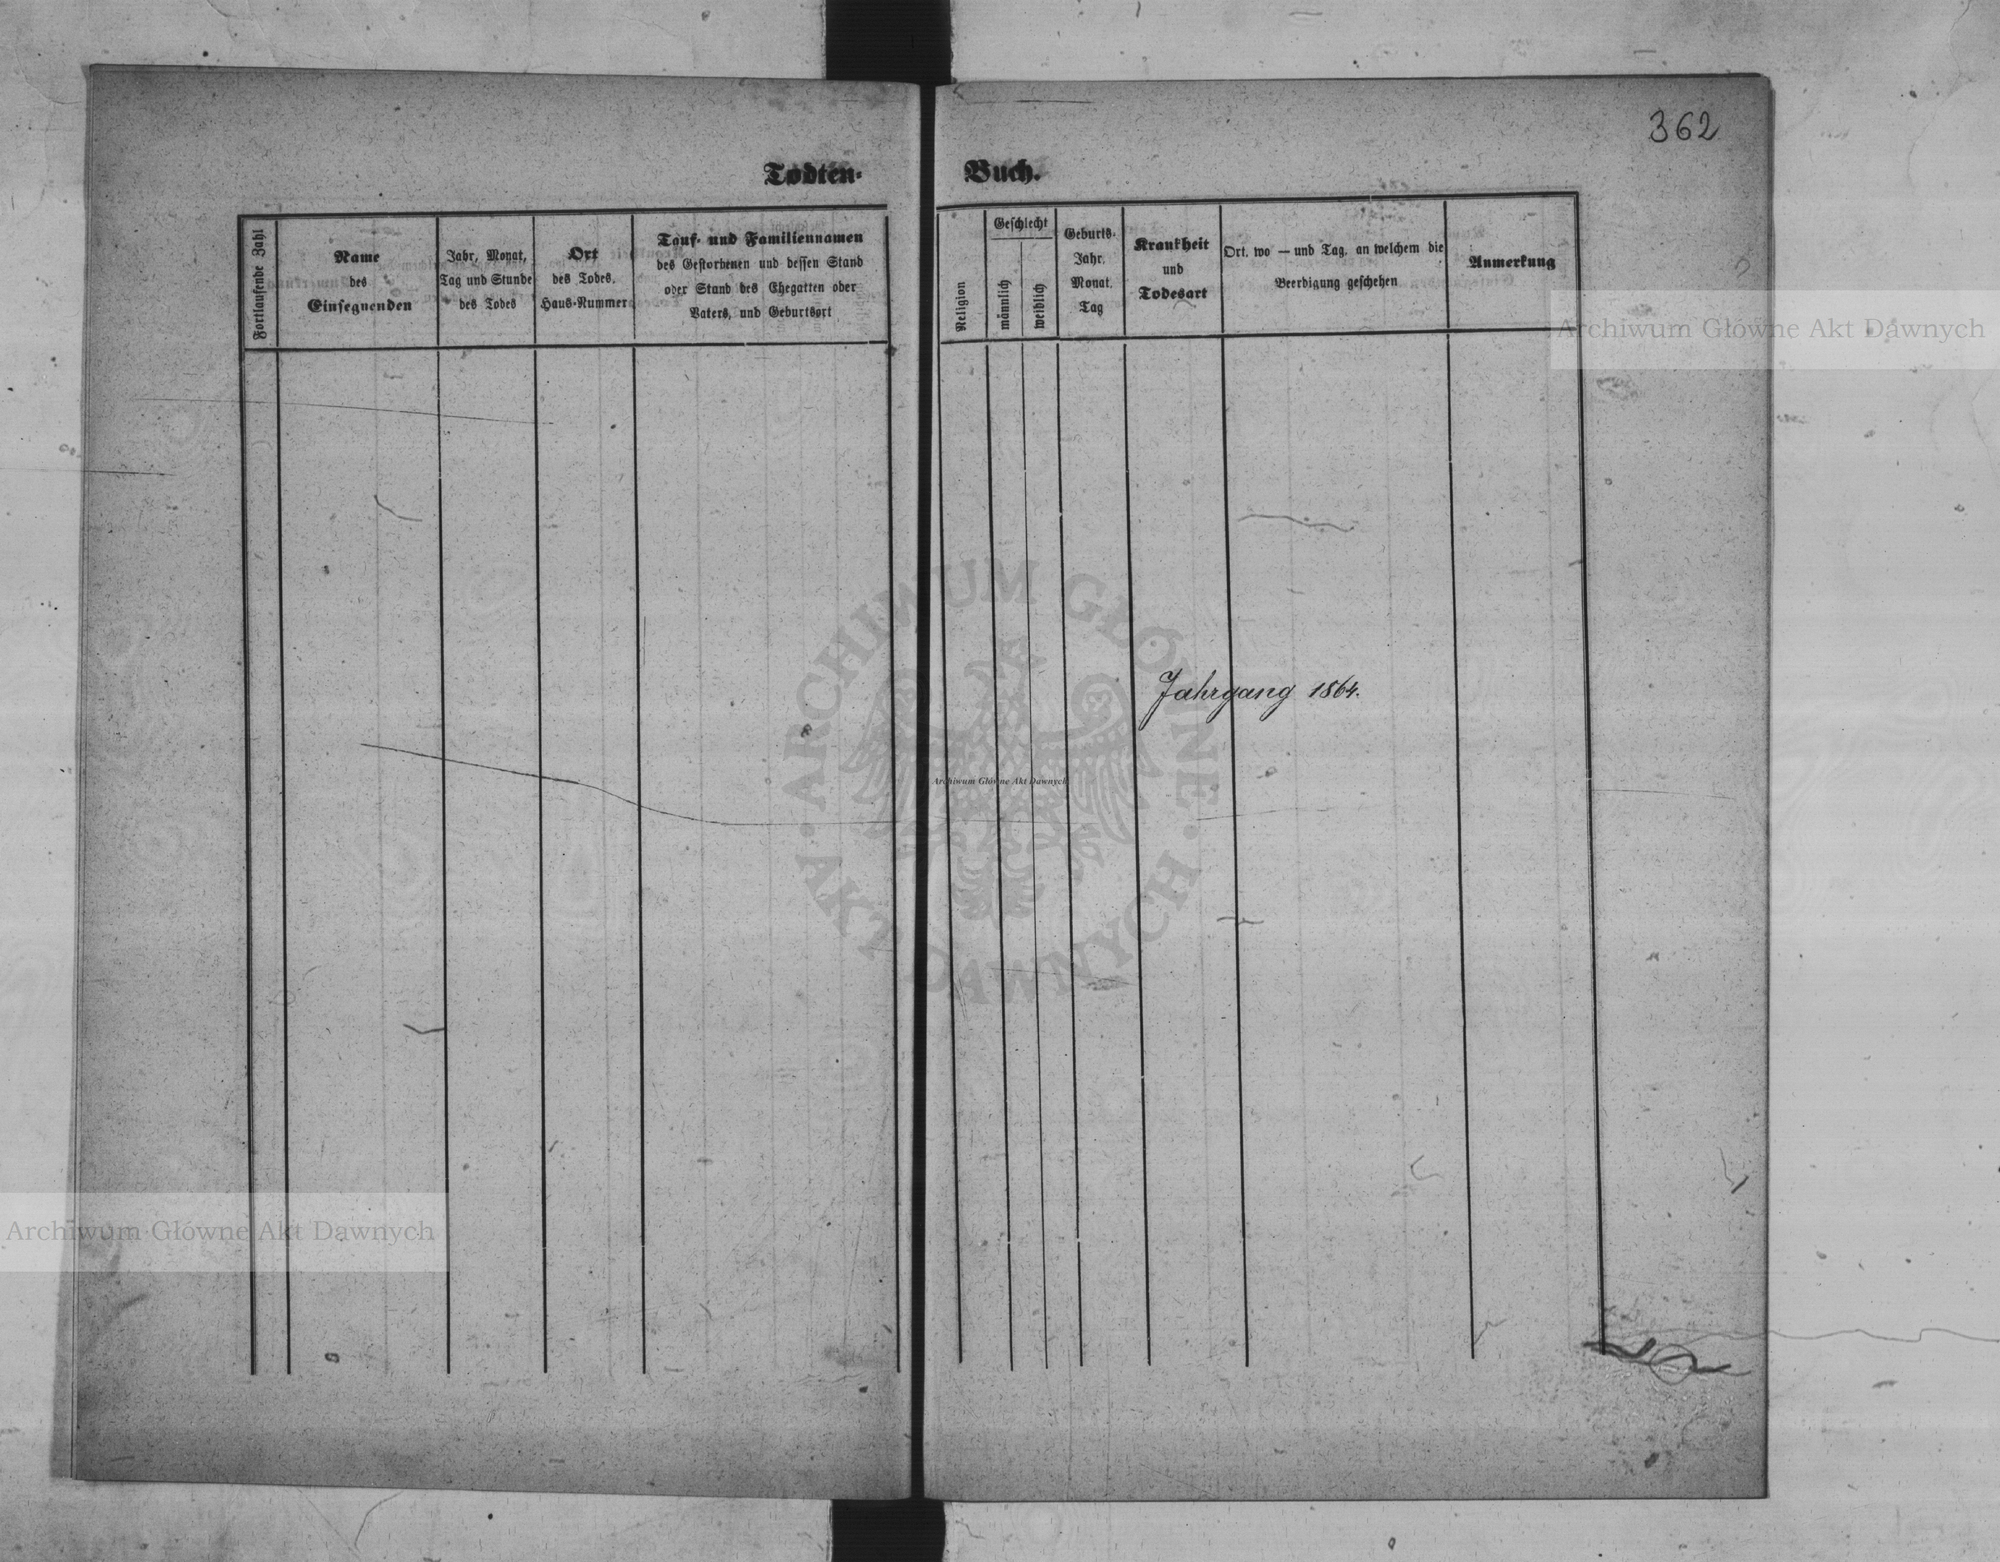 362
Todten-
Buch.
Fortlaufende Zahl
Name
des
Einsegnenden
Jahr, Monat,
Tag und Stunde
des Todes
Ort
des Todes,
Haus-Nummer
Tauf- und Familiennamen
des Gestorbenen und dessen Stand
oder Stand des Ehegatten oder
Vaters, und Geburtsort
Religion
Geschlecht
männlich
weiblich
Geburts-
Jahr,
Monat,
Tag
Krankheit
und
Todesart
Ort, wo — und Tag, an welchem die
Beerdigung geschehen
Anmerkung
Archiwum Główne Akt Dawnych
Jahrgang 1864.
ARCHIWUM GŁÓWNE · AKT DAWNYCH ·
Archiwum Główne Akt Dawnych
Archiwum Główne Akt Dawnych